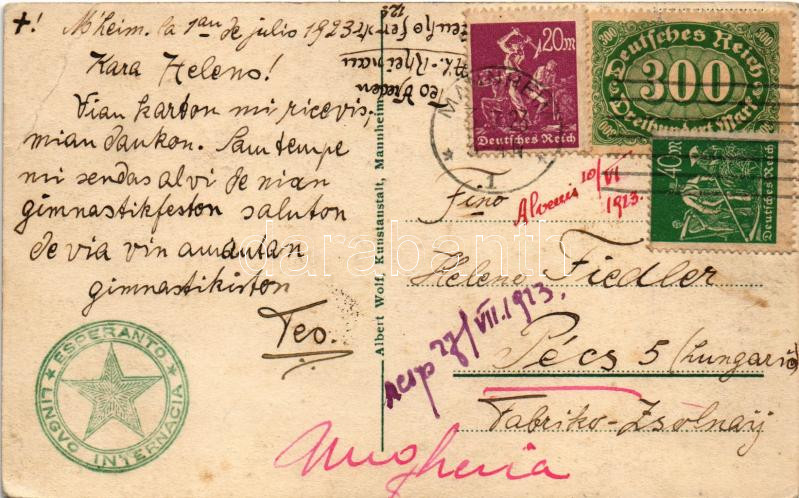 +! M'heim. la 1an de julio 1923
Kara Heleno!
Vian karton mi ricevis,
mian dankon. Samtempe
mi sendas al vi de nian
gimnastikfeston saluton
de via vin amantan
gimnastikiston
Teo.
Teo
Rheinau
ESPERANTO
LINGVO INTERNACIA
Albert Wolf, Kunstanstalt, Mannheim
20m
Deutsches Reich
Deutsches Reich
300
300
300
Dreihundert Mark
40m
Deutsches Reich
MANNHEIM
1
Fino
Alvenis 10/VII
1923.
Helene Fiedler
Pécs 5 (Hungario)
Fabriko-Zsolnay
resp 27/VII.1923.
Ungheria
darabanth